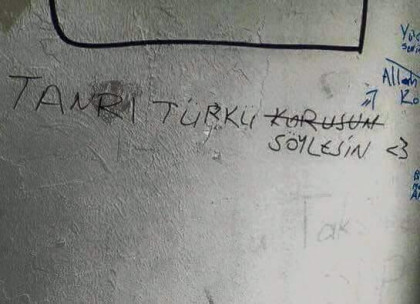 TANRI TÜRKÜ KORUSUN
SÖYLESİN <3
Allah
Tak